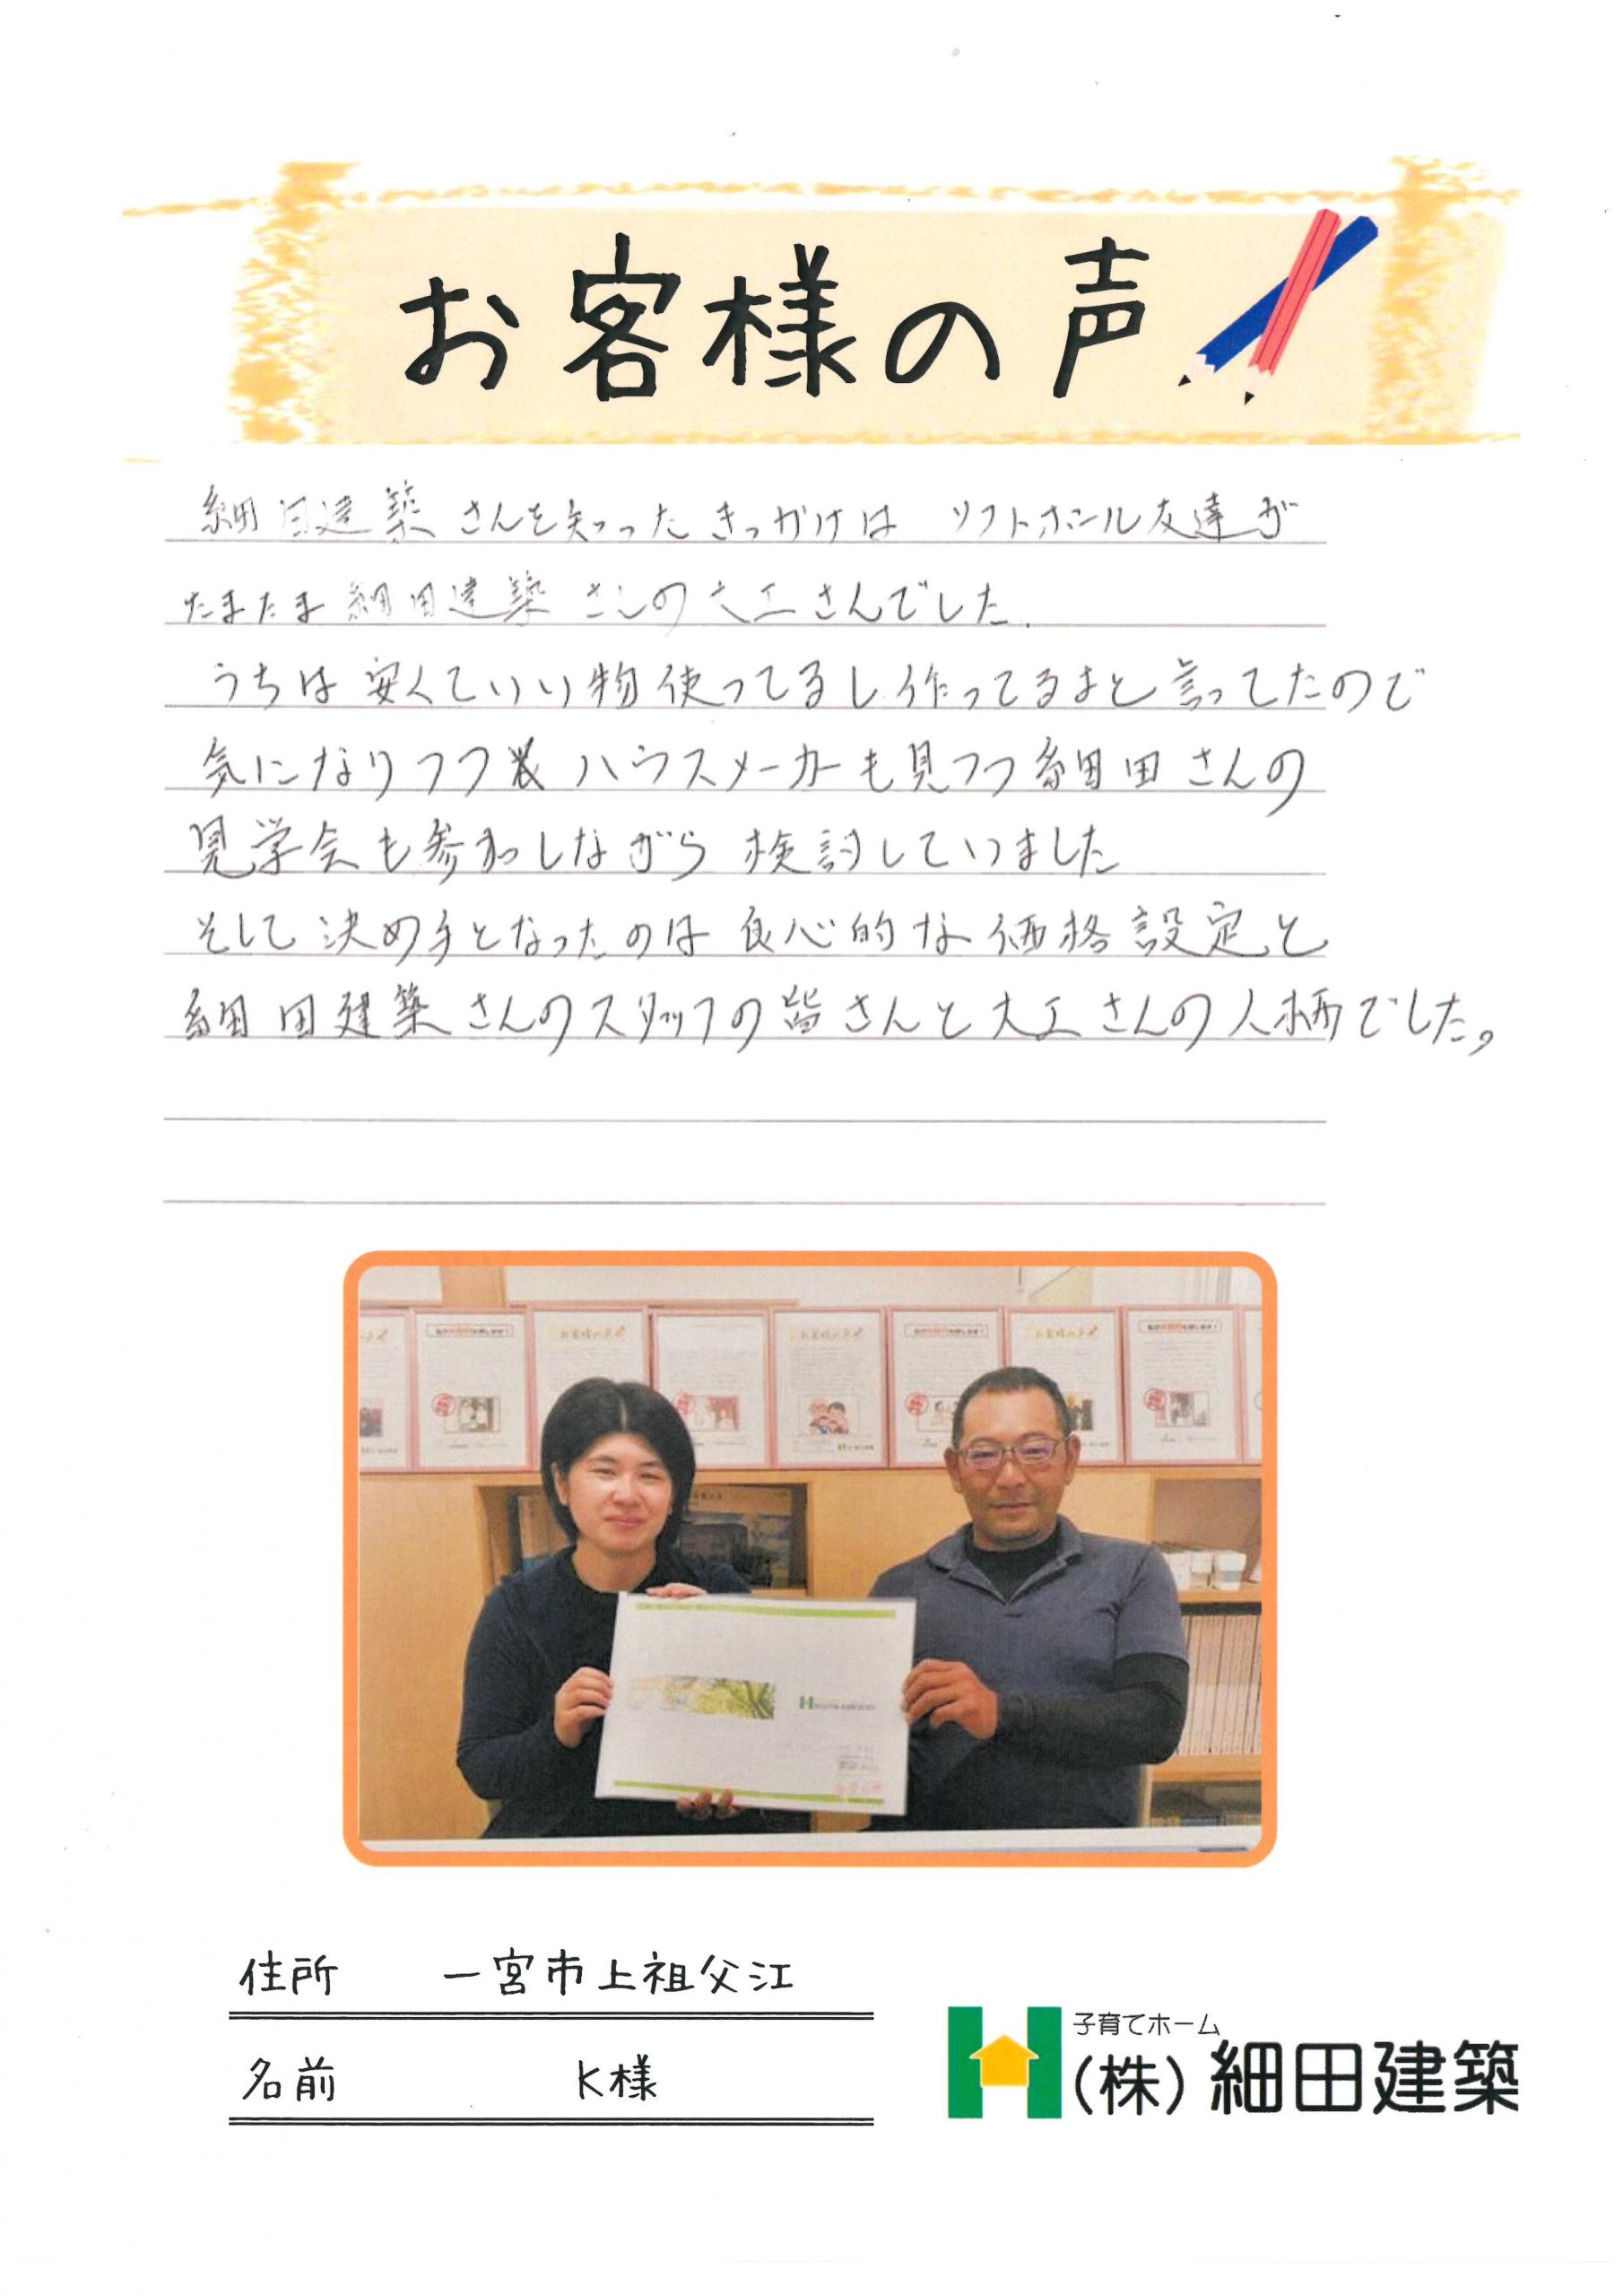 お客様の声
細田建築さんを知ったきっかけは ソフトボール友達が
たまたま細田建築さんの大工さんでした.
うちは安くていい物使ってるし作ってるよと言ってたので
気になりつつ ハウスメーカーも見つつ細田さんの
見学会も参加しながら 検討していました
そして決め手となったのは良心的な価格設定と
細田建築さんのスタッフの皆さんと大工さんの人柄でした。
お客様の声
お客様の声
お客様の声
住所 一宮市上祖父江
名前 K様
子育てホーム
(株)細田建築